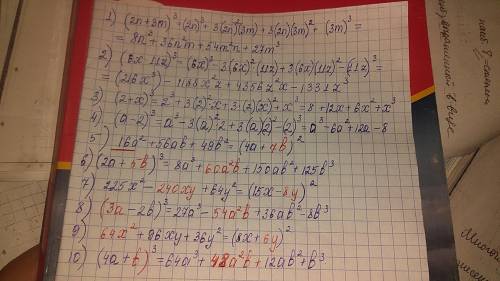 1) (2n+3m)³=(2n)³+3(2n)²(3m)+3(2n)(3m)²+(3m)³=
=8n³+36n²m+54m²n+27m³
2) (6x-11z)³=(6x)³-3(6x)²(11z)+3(6x)(11z)²-(11z)³=
=(216x³-1188x²z+4356z²x-1331z³
3) (2+x)³=2³+3(2)²x+3(2)(x)²+x³=8+12x+6x²+x³
4) (a-2)³=a³-3(a)²2+3(a)(2)²-(2)³=a³-6a²+12a-8
5) 16a²+56ab+49b²=(4a+7b)²
6) (2a+5b)³=8a³+60a²b+150ab²+125b³
7) 225x²-240xy+64y²=(15x-8y)²
8) (3a-2b)³=27a³-54a²b+36ab²-8b³
9) 64x²+96xy+36y²=(8x+6y)²
10) (4a+b)³=64a³+48a²b+12ab²+b³